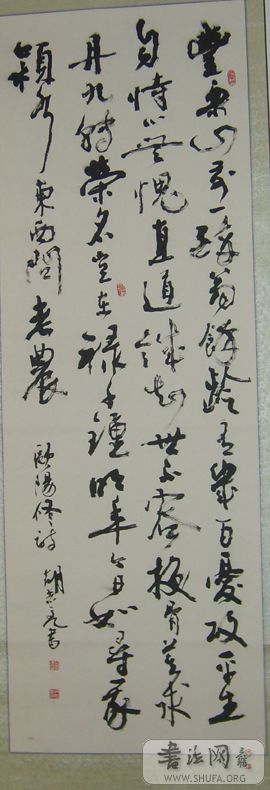 豐樂山前一醉翁餘齡有幾百憂攻平生
自恃心無愧直道誠知世不容換骨莫求
丹九轉榮名豈在祿千鍾明年今日如尋我
潁水東西問老農
歐陽修詩
胡 書
书法网
WWW.SHUFA.ORG